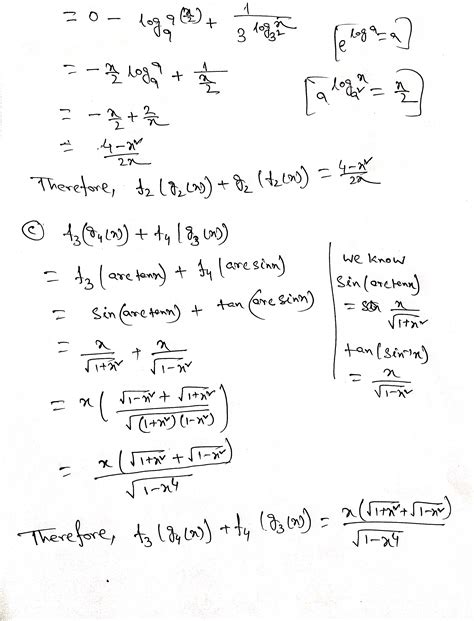 = 0 - log₉ 9^(x/2) + 1/3^(log_3² x)
[e^(log a) = a]
= -x/2 log₉ 9 + 1/(x/2)
[a^(log_a² x) = x/2]
= -x/2 + 2/x
= (4-x²)/2x
Therefore, f₂(g₂(x)) + g₂(f₂(x)) = (4-x²)/2x
ⓒ f₃(g₄(x)) + f₄(g₃(x))
= f₃(arctanx) + f₄(arcsinx)
= sin(arctanx) + tan(arcsinx)
= x/√(1+x²) + x/√(1-x²)
= x( (√(1-x²) + √(1+x²))/√((1+x²)(1-x²)) )
= x(√(1+x²) + √(1-x²))/√(1-x⁴)
we know
sin(arctanx)
= x/√(1+x²)
tan(sin⁻¹x)
= x/√(1-x²)
Therefore, f₃(g₄(x)) + f₄(g₃(x)) = x(√(1+x²)+√(1-x²))/√(1-x⁴)